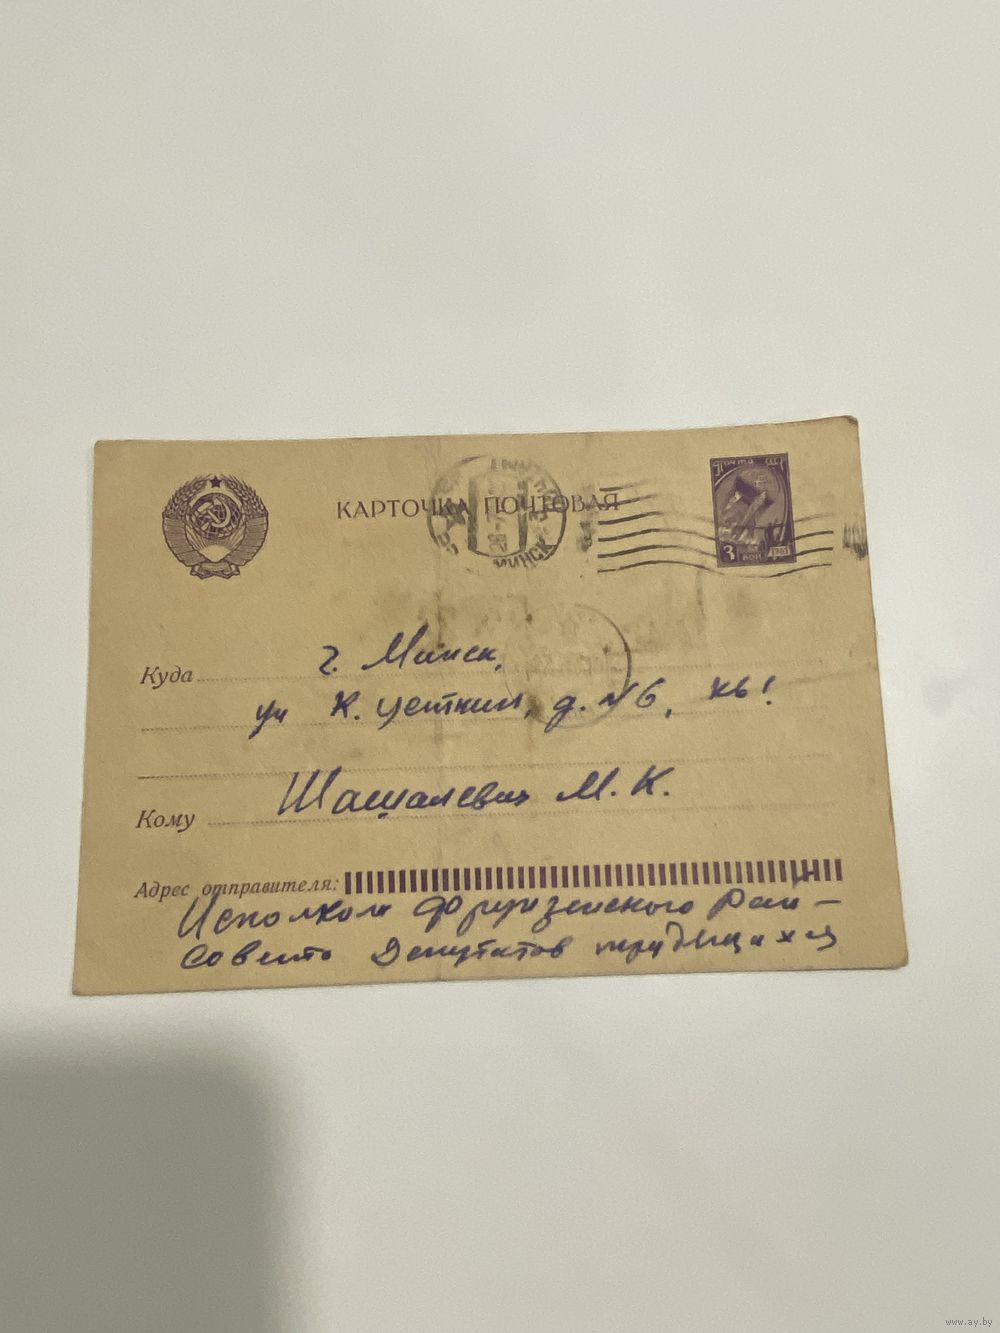 КАРТОЧКА ПОЧТОВАЯ
МИНСК
ПОЧТА СССР
3 КОП 1961
Куда г. Минск,
ул К. Цеткин, д. №6, кв 1
Кому Шашалевич М. К.
Адрес отправителя:
Исполком Фрунзенского Рай-
совета Депутатов трудящихся
www.ay.by